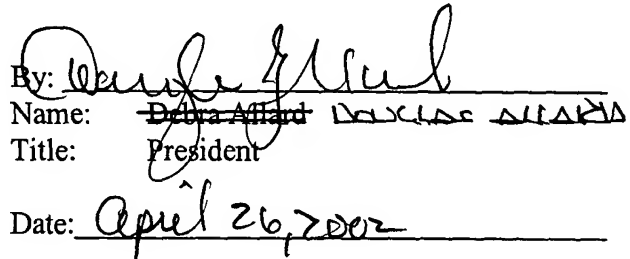 By:
Name: Debra Allard DOUGLAS ALLARD
Title: President
Date: April 26, 2002